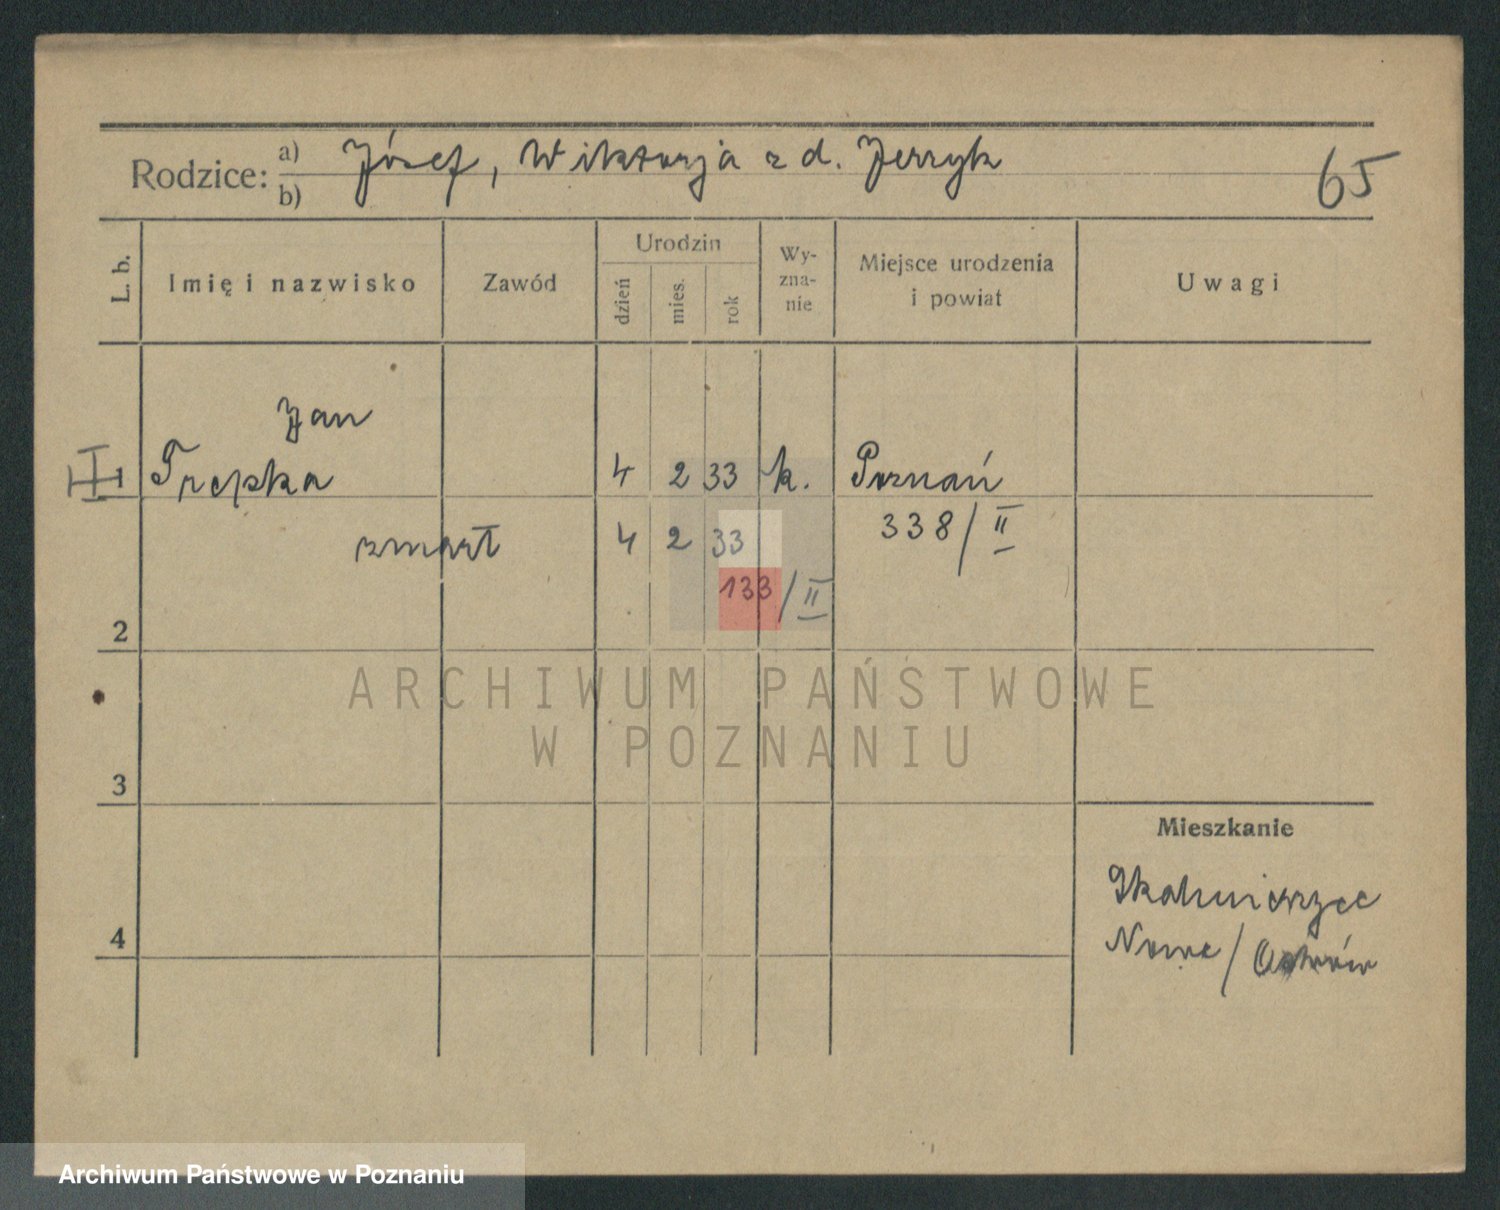 Rodzice: a) Józef, Wiktorja z d. Jerzyk
b)
65
L. b.
Imię i nazwisko
Zawód
Urodzin
dzień
mies.
rok
Wy-
zna-
nie
Miejsce urodzenia
i powiat
Uwagi
Jan
1 Trepka 4 2 33 k. Poznań
zmarł 4 2 33 338/II
133/II
2
ARCHIWUM PAŃSTWOWE
W POZNANIU
3
Mieszkanie
Skalmierzyce
4
Nowe / Ostrów
Archiwum Państwowe w Poznaniu